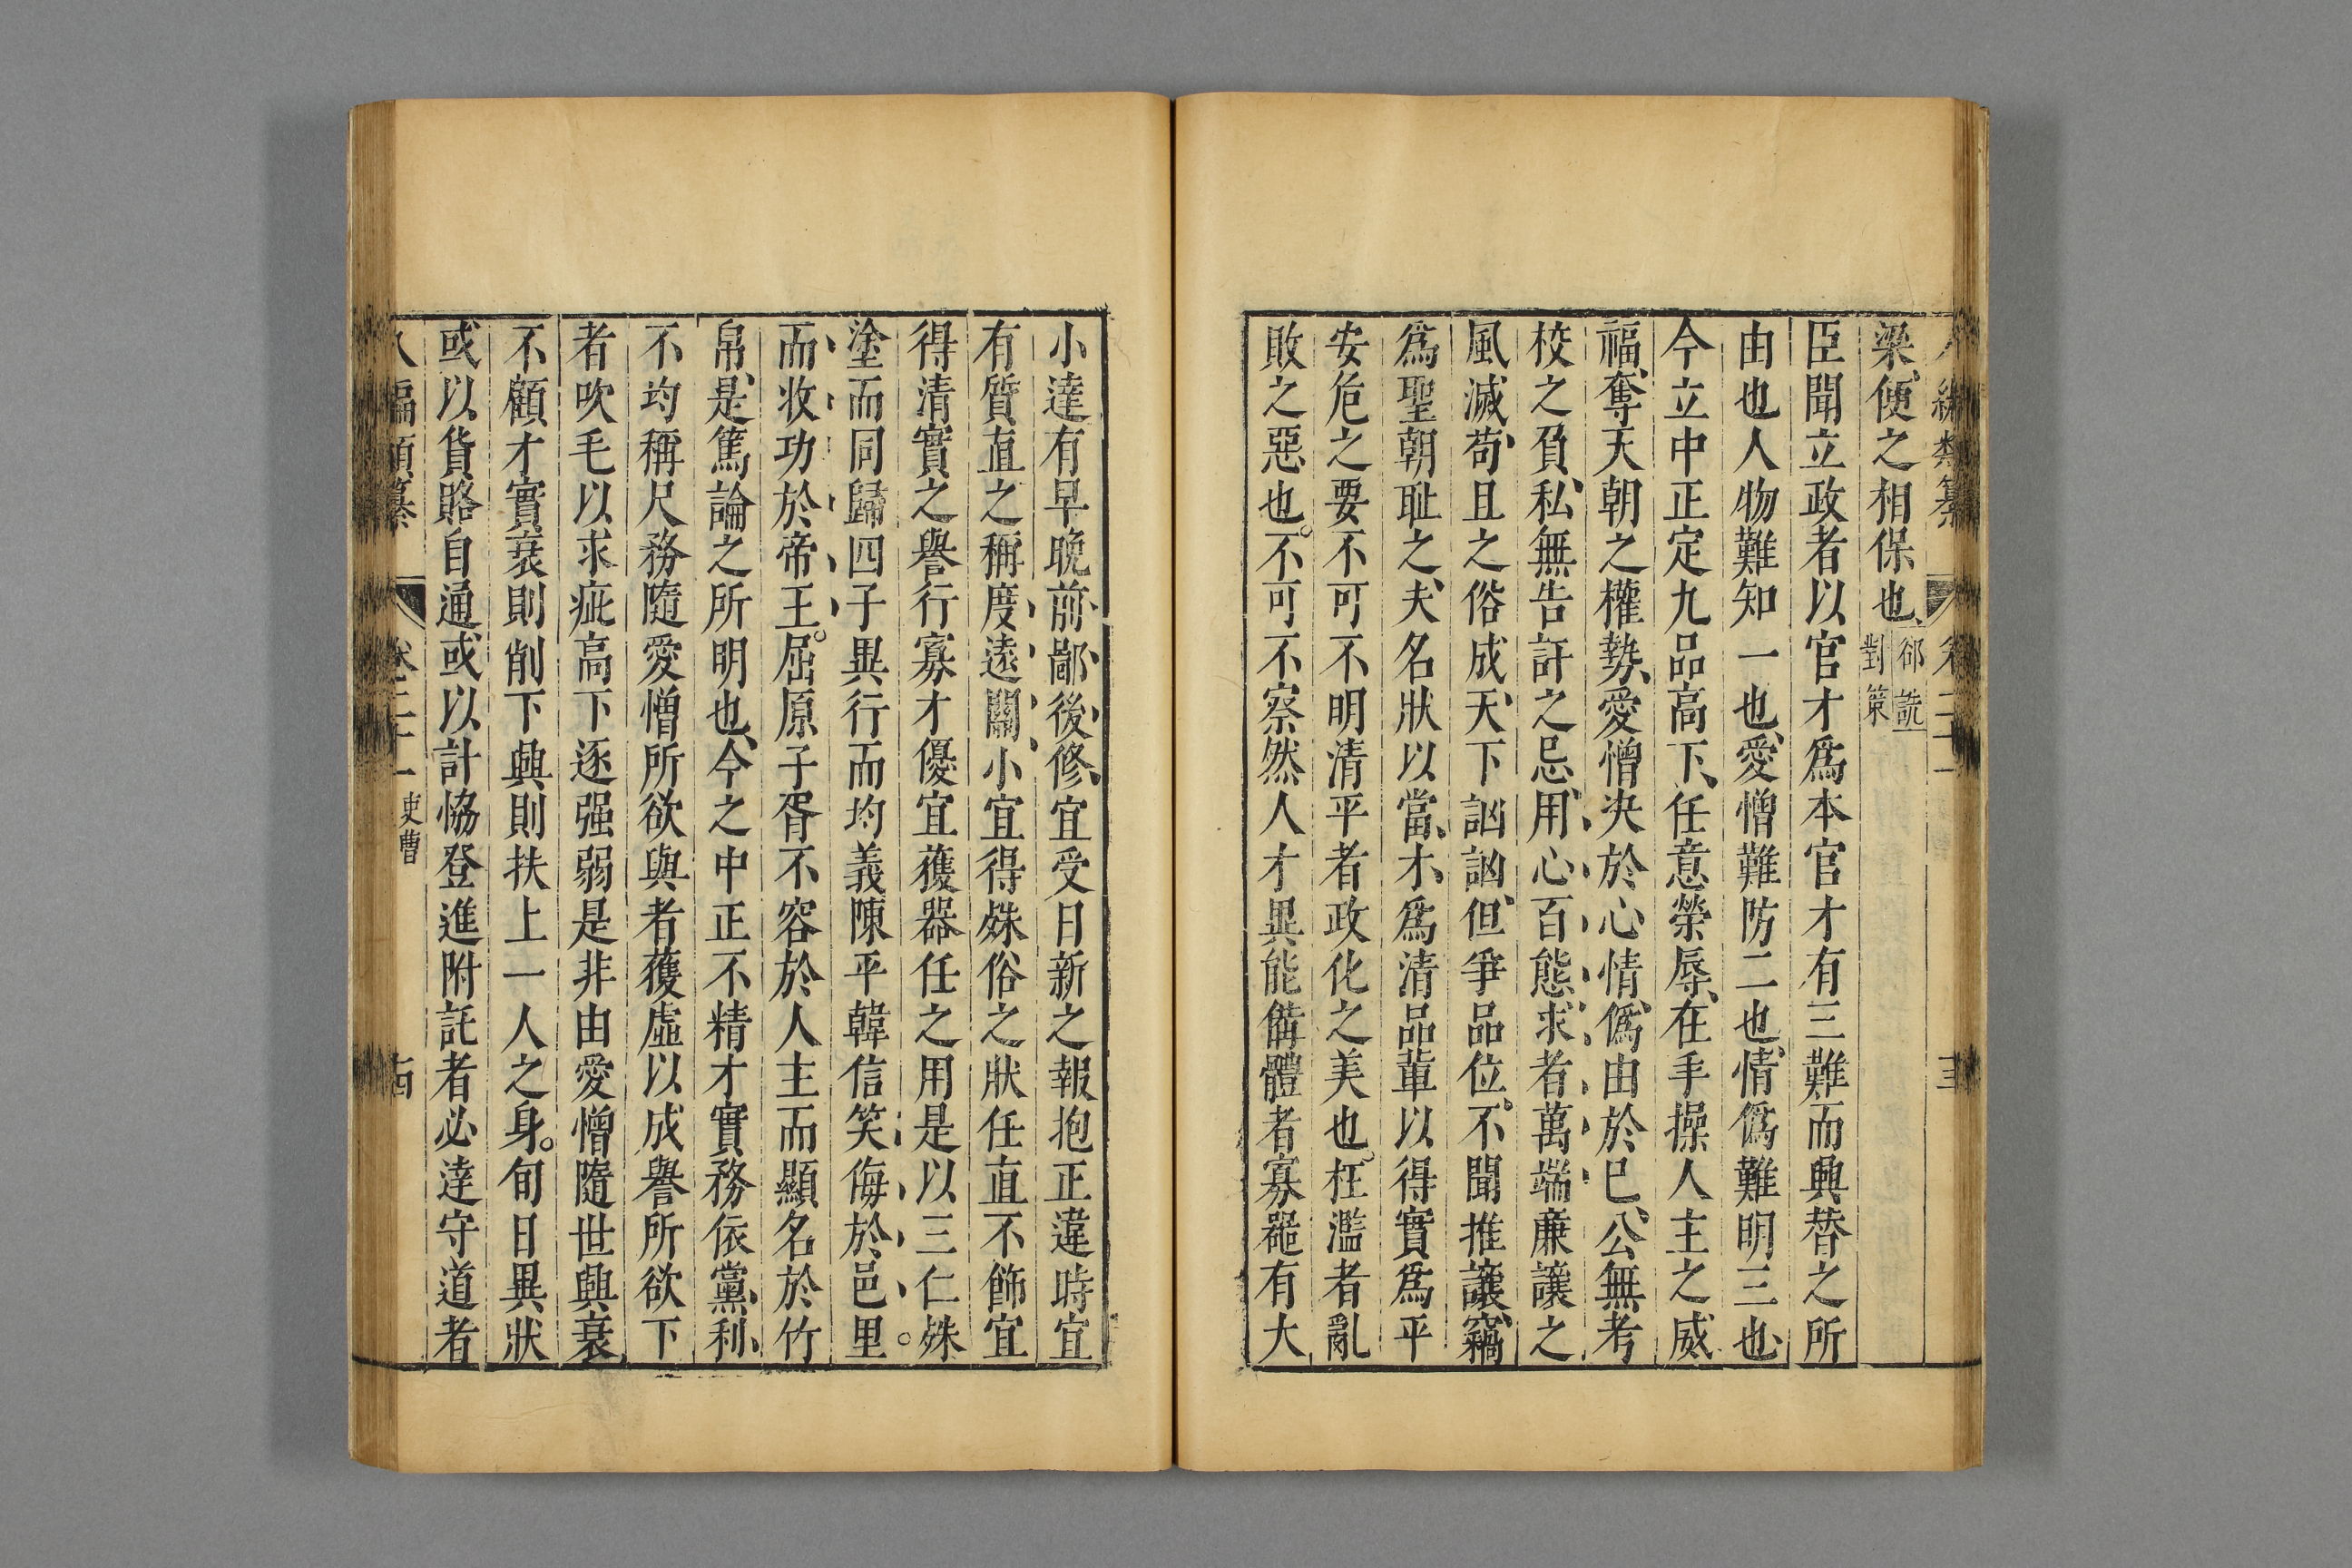 八編類纂 卷二十一 十三
梁便之相保也郤詵對策
臣聞立政者以官才爲本官才有三難而興替之所
由也人物難知一也愛憎難防二也情僞難明三也
今立中正定九品高下任意榮辱在手操人主之威
福奪天朝之權勢愛憎決於心情僞由於已公無考
校之負私無告訐之忌用心百態求者萬端廉讓之
風滅苟且之俗成天下訩訩但爭品位不聞推讓竊
爲聖朝耻之夫名狀以當才爲清品輩以得實爲平
安危之要不可不明清平者政化之美也枉濫者亂
敗之惡也不可不察然人才異能備體者寡器有大
小達有早晚前鄙後修宜受日新之報抱正違時宜
有質直之稱度遠闕小宜得殊俗之狀任直不飾宜
得清實之譽行寡才優宜獲器任之用是以三仁殊
塗而同歸四子異行而均義陳平韓信笑侮於邑里
而收功於帝王屈原子胥不容於人主而顯名於竹
帛是篤論之所明也今之中正不精才實務依黨利
不均稱尺務隨愛憎所欲與者獲虛以成譽所欲下
者吹毛以求疵高下逐强弱是非由愛憎隨世興衰
不顧才實衰則削下興則扶上一人之身旬日異狀
或以貨賂自通或以計恊登進附託者必達守道者
八編類纂 卷二十一 吏曹 十四